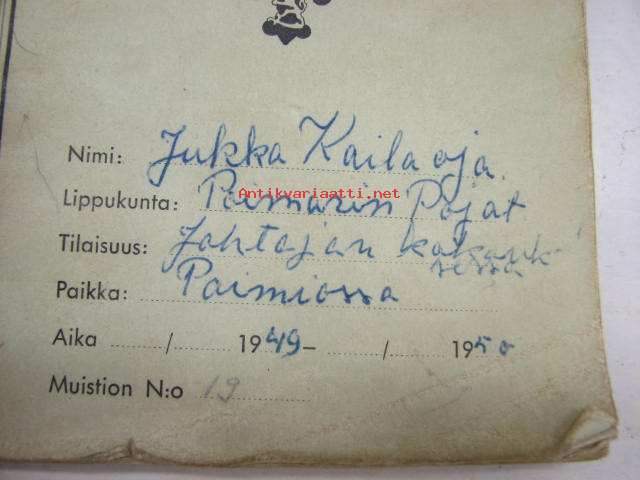 Nimi: Jukka Kailaoja
Antikvariaatti.net
Lippukunta: Paimaren Pojat
Tilaisuus: Johtajan
Paikka: Paimiossa
Aika ........../.......... 1949– ........../.......... 1950
Muistion N:o 19